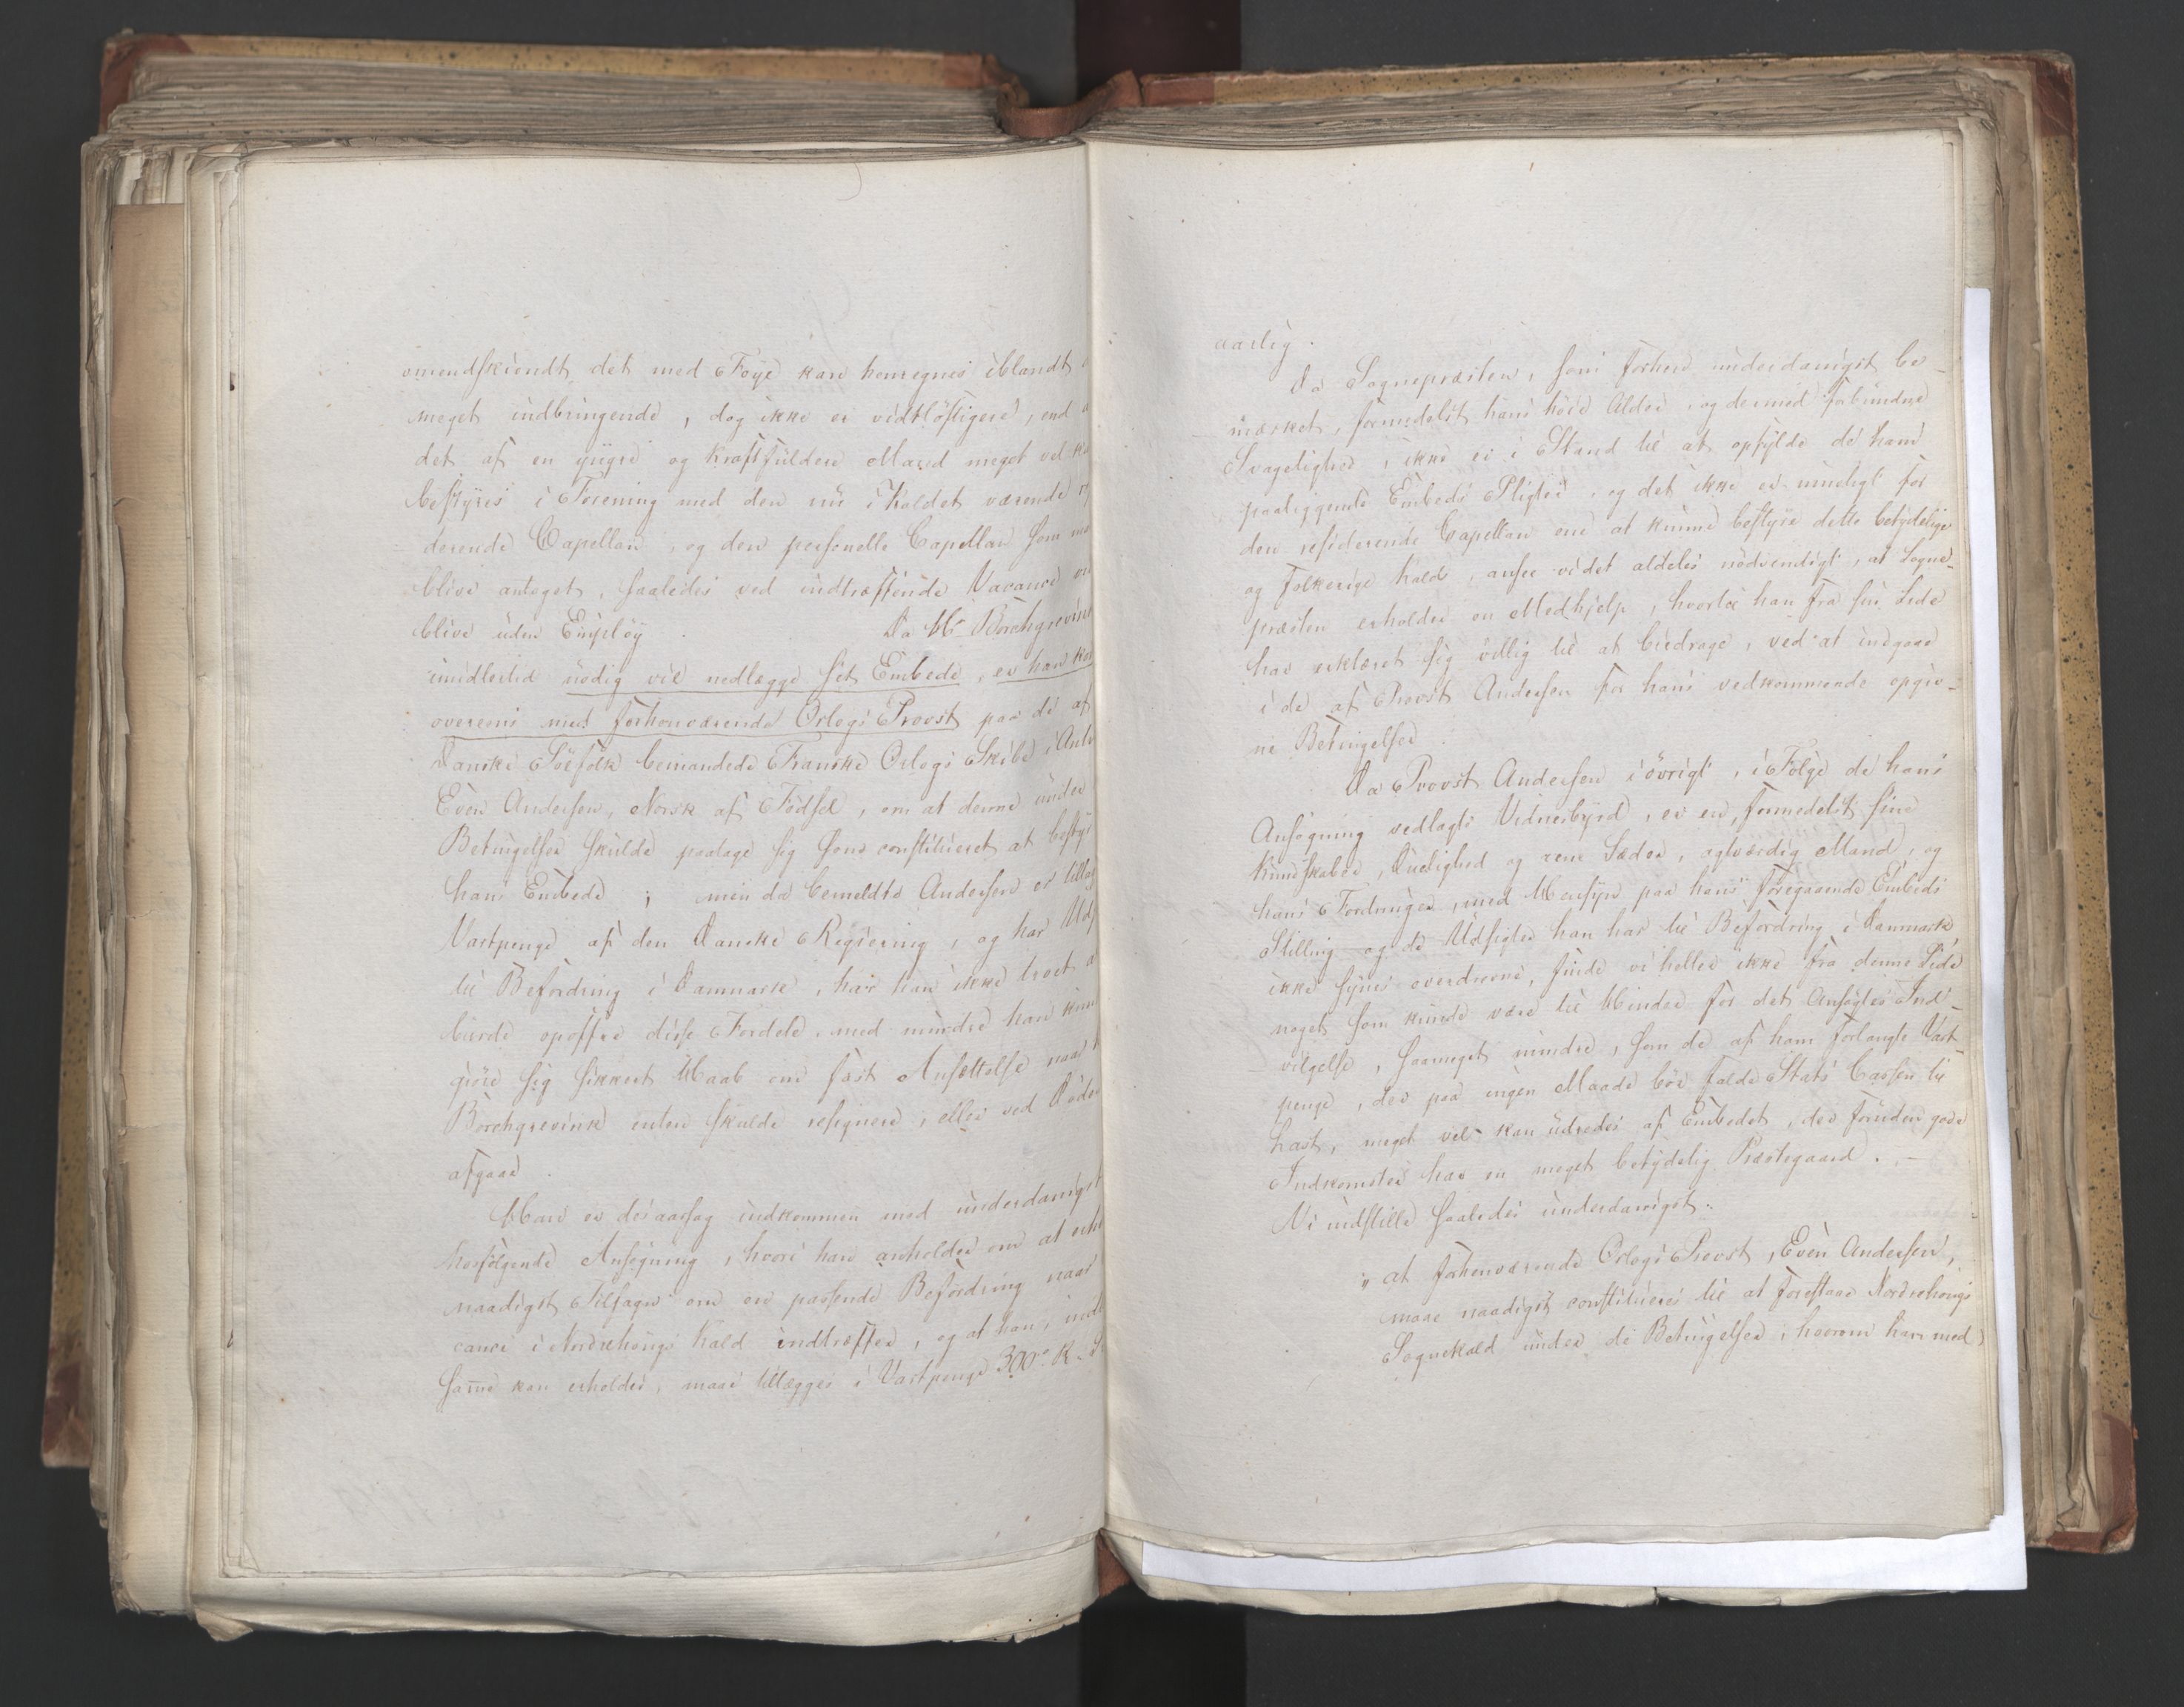 omendskiöndt det med Föye kan henregnes iblandt
meget indbringende, dog ikke er vidtløftigere, end
det af en yngre og kraftfuldere Mand meget vel
bestyres i Forening med den nu i Kaldet værende
derende Capellan, og den personelle Capellan som
blive antaget, saaledes ved indtræffende Vacance
blive uden Employ. Da Hr Borchgrevink
imidlertid nödig vil nedlægge sit Embede, er han
overeens med forhenværende Orlogs Provst paa de af
Danske Söefolk bemandede Franske Orlogs Skibe i
Even Andersen, Norsk af Födsel, om at denne under
Betingelser skulde paatage sig som constitueret at
hans Embede; men da bemeldte Andersen er
Vartpenge af den Danske Regiering, og har
til Befordring i Danmark, har han ikke troet
burde opoffre disse Fordele, med mindre han
giöre sig sikkert Haab om fast Ansættelse naar
Borchgrevink enten skulde resignere, eller ved
afgaae.
Han er desaarsag indkommen med underdanigst
hosfölgende Ansögning, hvori han anholder om at
naadigst Tilsagn om en passende Befordring naar
cance i Norderhougs Kald indtræffer, og at han,
samme kan erholdes, maae tillægges i Vartpenge 300
aarlig.
Da Sognepræsten, som forhen underdanigst be-
mærket, formedelst hans höie Alder, og dermed forbundne
Svagelighed, ikke er i Stand til at opfylde de ham
paaliggende Embeds Pligter, og det ikke er mueligt for
den residerende Capellan ene at kunne bestyre dette betydelige
og folkerige Kald, ansee vi det aldeles nödvendigt, at Sogne-
præsten erholder en Medhjelp, hvortil han fra sin Side
har erklæret sig villig til at bidrage, ved at indgaae
i de af Provst Andersen for hans vedkommende opgiv-
ne Betingelser.
Da Provst Andersen iövrigt, i Fölge de hans
Ansögning vedlagte Vidnesbyrd, er en, formedelst sine
Kundskaber, Duelighed og rene Sæder, agtværdig Mand, og
hans Fordringer, med Hensyn paa hans foregaaende Embeds
Stilling og de Udsigter han har til Befordring i Danmark
ikke synes overdrevne, finde vi heller ikke fra denne Side
noget som kunde være til Hinder for det Ansögtes Ind-
vilgelse, saameget mindre, som de af ham forlangte Vart-
penge, der paa ingen Maade bör falde Stats Cassen til
Last, meget vel kan udredes af Embedet, der foruden gode
Indkomster har en meget betydelig Præstegaard. –
Vi indstille saaledes underdanigst:
"at forhenværende Orlogs Provst, Even Andersen,
maae naadigst constitueres til at forestaae Norderhougs
Sognekald under de Betingelser, hvorom han med